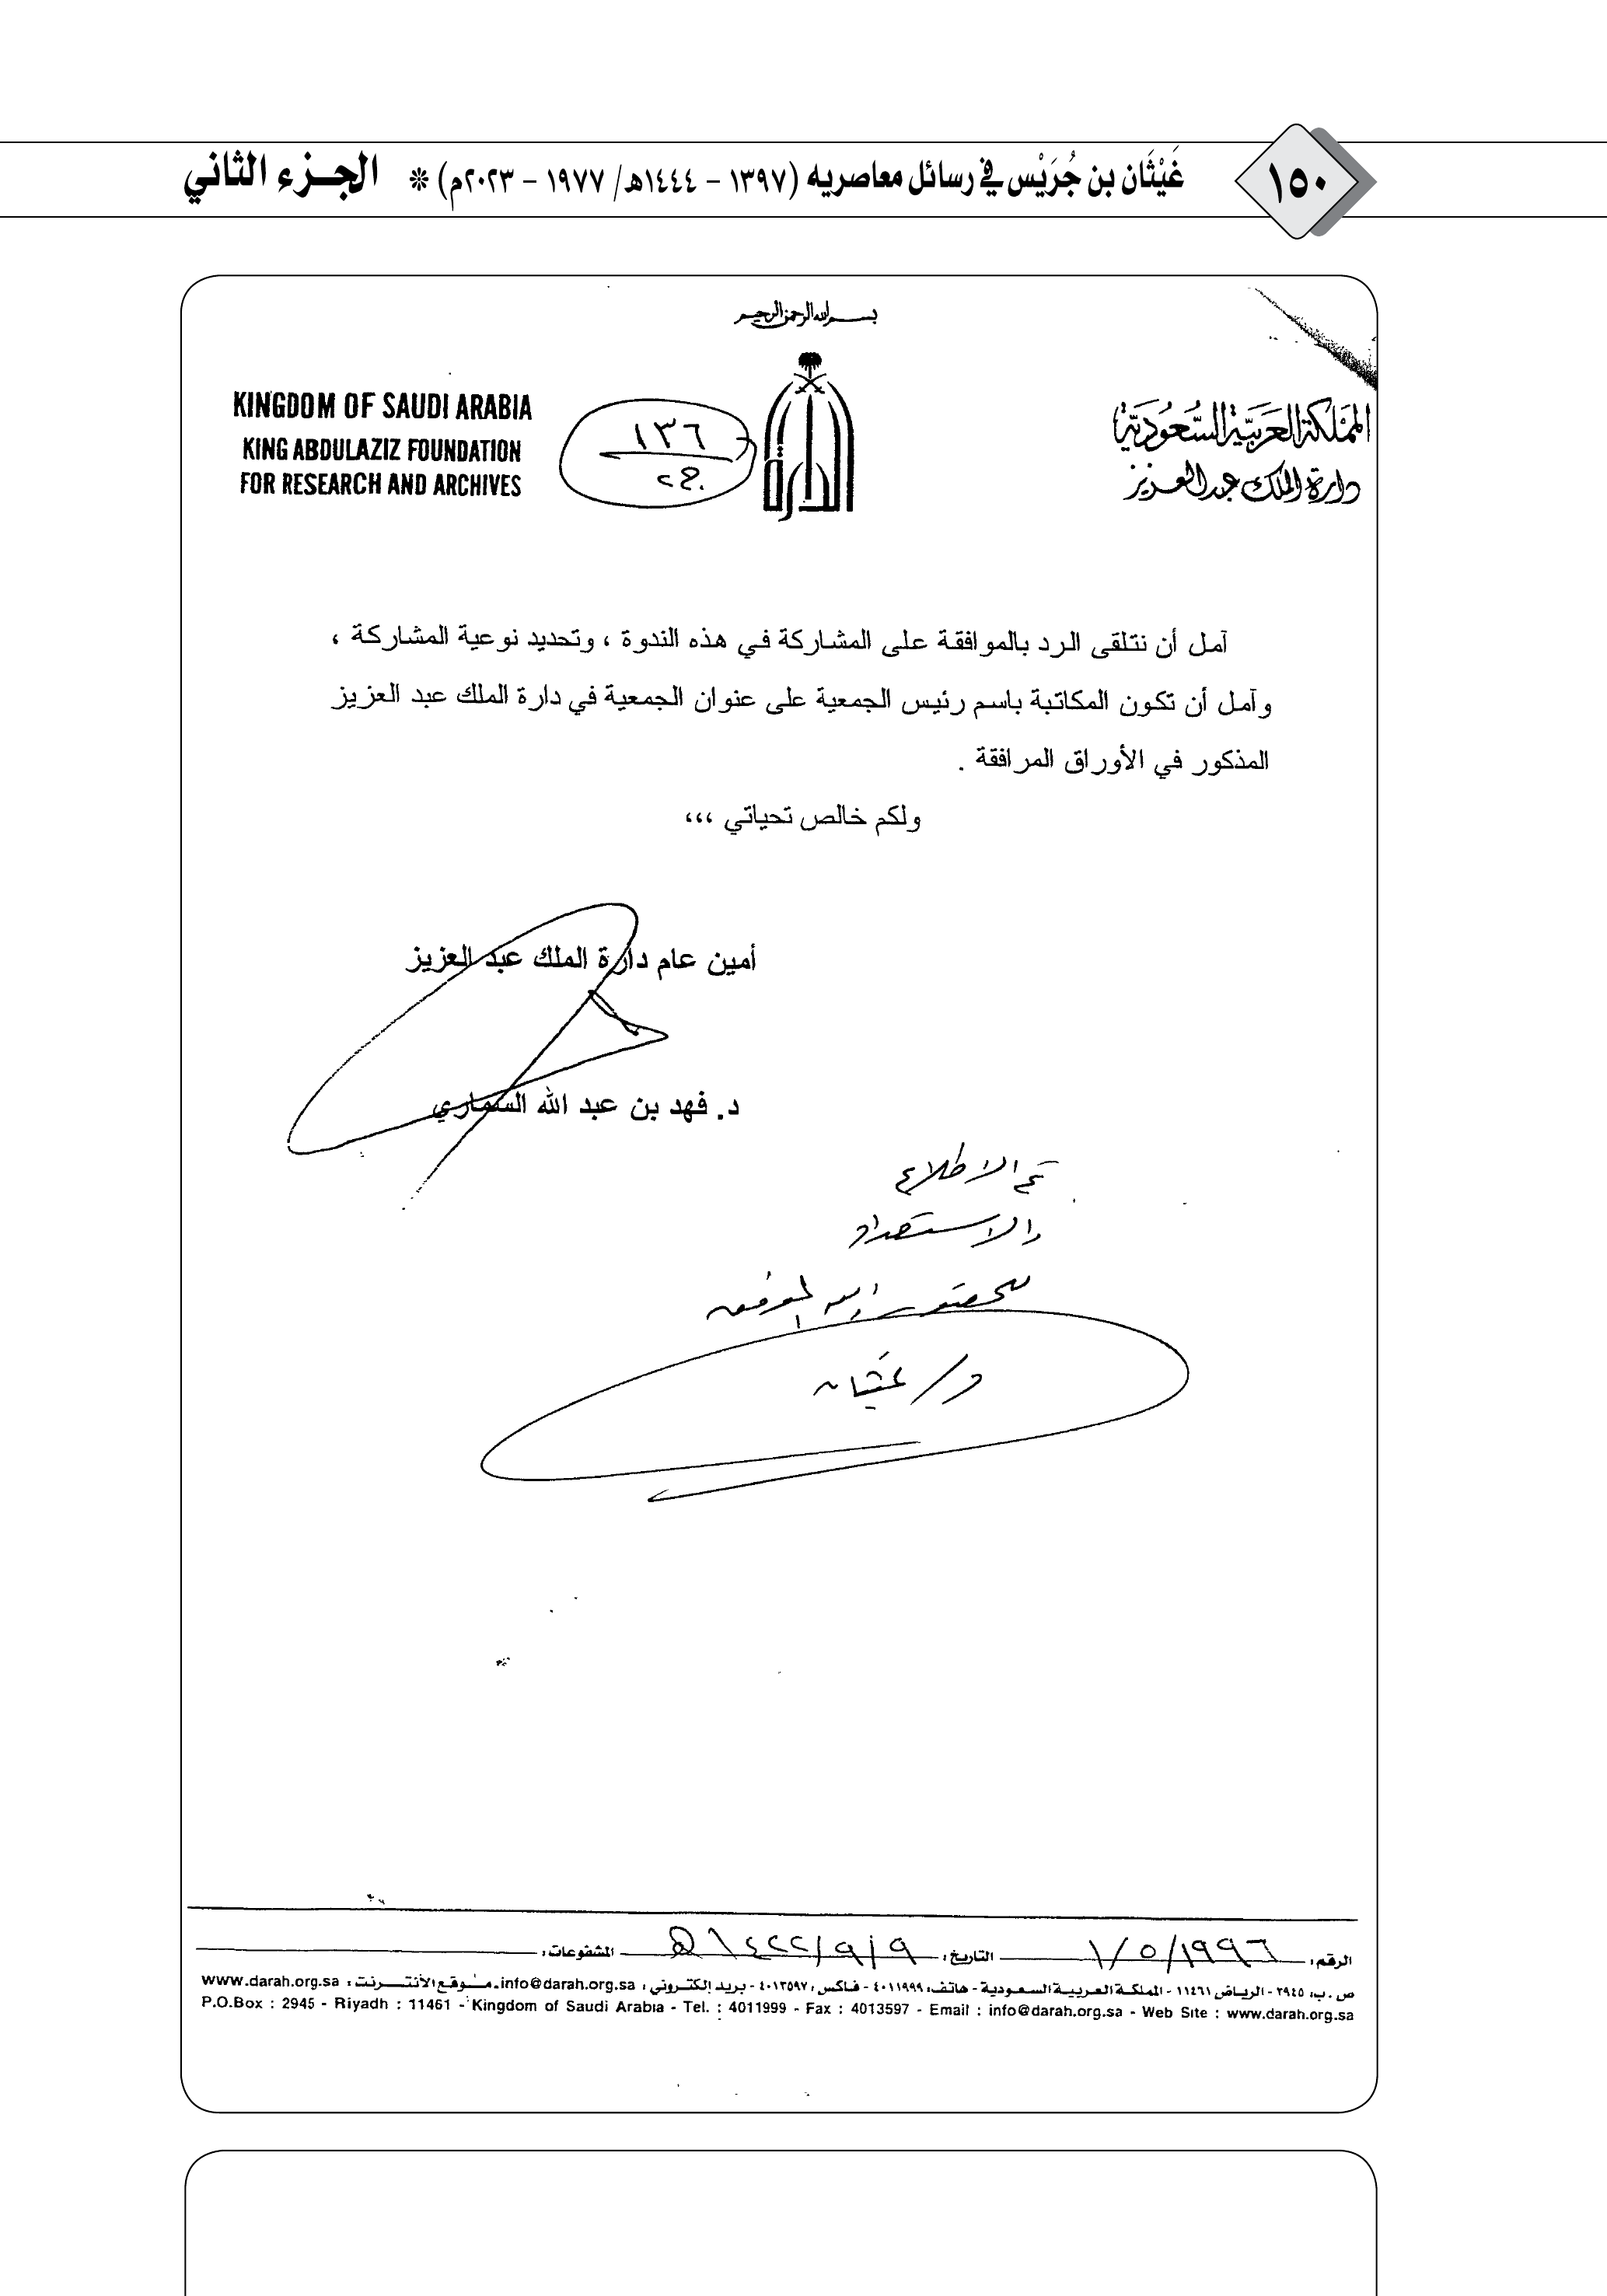 ١٥٠
غَيْثَان بن جُرَيْس في رسائل معاصريه (١٣٩٧ – ١٤٤٤هـ/ ١٩٧٧ – ٢٠٢٣م) * الجـزء الثاني
بسم الله الرحمن الرحيم
المملكة العربية السعودية
دارة الملك عبدالعزيز
الدارة
١٣٦
KINGDOM OF SAUDI ARABIA
KING ABDULAZIZ FOUNDATION
FOR RESEARCH AND ARCHIVES
آمل أن نتلقى الرد بالموافقة على المشاركة في هذه الندوة ، وتحديد نوعية المشاركة ،
وآمل أن تكون المكاتبة باسم رئيس الجمعية على عنوان الجمعية في دارة الملك عبد العزيز
المذكور في الأوراق المرافقة .
ولكم خالص تحياتي ،،،
أمين عام دارة الملك عبد العزيز
د. فهد بن عبد الله السماري
تم الاطلاع
والاستعداد
للحضور والله الموفق
د/ غيثان
الرقم: ١/٥/١٩٩٦ التاريخ: ٩/٩/١٤٢٢هـ المشفوعات:
ص.ب: ٢٩٤٥ - الرياض ١١٤٦١ - المملكة العربية السعودية - هاتف: ٤٠١١٩٩٩ - فاكس: ٤٠١٣٥٩٧ - بريد إلكتروني: info@darah.org.sa - موقع الأنترنت: www.darah.org.sa
P.O.Box : 2945 - Riyadh : 11461 - Kingdom of Saudi Arabia - Tel. : 4011999 - Fax : 4013597 - Email : info@darah.org.sa - Web Site : www.darah.org.sa